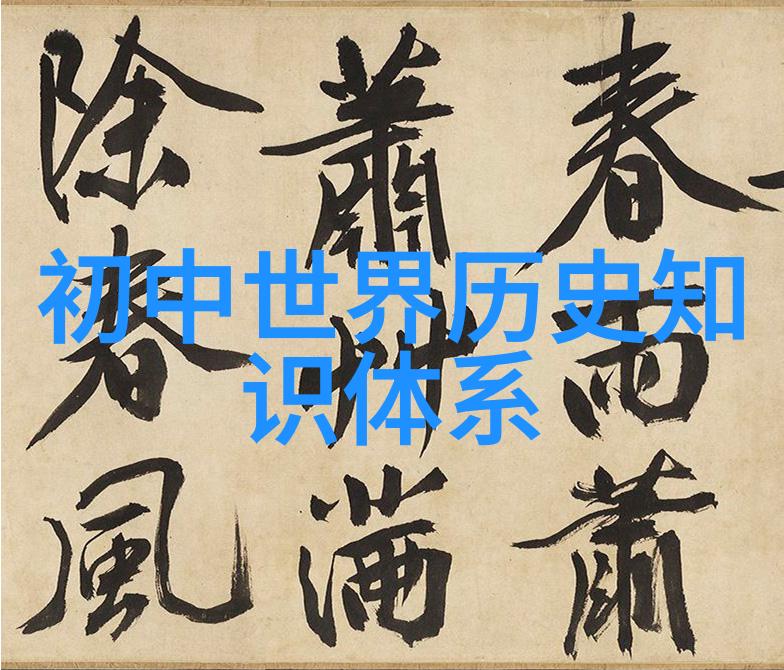 初中世界历史知
识体系
春雨蕭
蕭艸滿
除春風